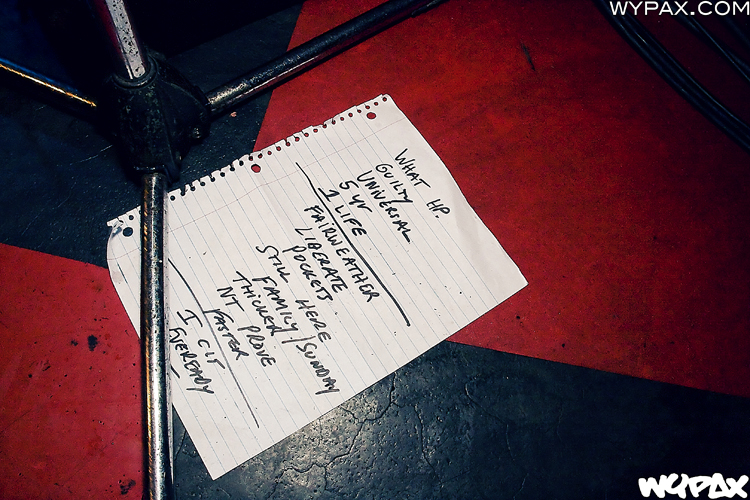 WYPAX.COM
WHAT HP.
GUILTY
UNIVERSAL
5 YR
1 LIFE
FAIRWEATHER
LIBERATE
POCKETS
STILL HERE
FAMILY/SUNDAY
THICKER
NT PROVE
FASTER
I CLT
EVEREADY
WYPAX